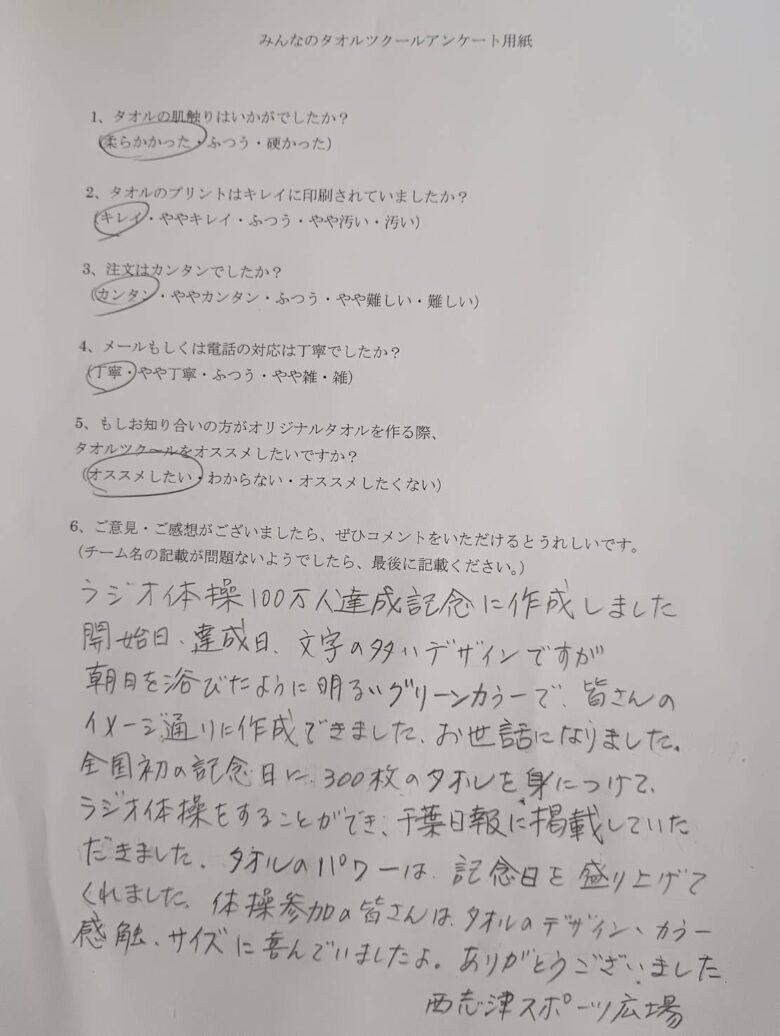 みんなのタオルツクールアンケート用紙
1、タオルの肌触りはいかがでしたか？
(柔らかかった・ふつう・硬かった)
2、タオルのプリントはキレイに印刷されていましたか？
(キレイ・ややキレイ・ふつう・やや汚い・汚い)
3、注文はカンタンでしたか？
(カンタン・ややカンタン・ふつう・やや難しい・難しい)
4、メールもしくは電話の対応は丁寧でしたか？
(丁寧・やや丁寧・ふつう・やや雑・雑)
5、もしお知り合いの方がオリジナルタオルを作る際、
タオルツクールをオススメしたいですか？
(オススメしたい・わからない・オススメしたくない)
6、ご意見・ご感想がございましたら、ぜひコメントをいただけるとうれしいです。
(チーム名の記載が問題ないようでしたら、最後に記載ください。)
ラジオ体操100万人達成記念に作成しました
開始日、達成日、文字の多いデザインですが
朝日を浴びたように明るいグリーンカラーで、皆さんの
イメージ通りに作成できました、お世話になりました。
全国初の記念日に、300枚のタオルを身につけて、
ラジオ体操をすることができ、千葉日報に掲載していた
だきました、タオルのパワーは、記念日を盛り上げて
くれました、体操参加の皆さんは、タオルのデザイン、カラー
感触、サイズに喜んでいましたよ。ありがとうございました
西志津スポーツ広場